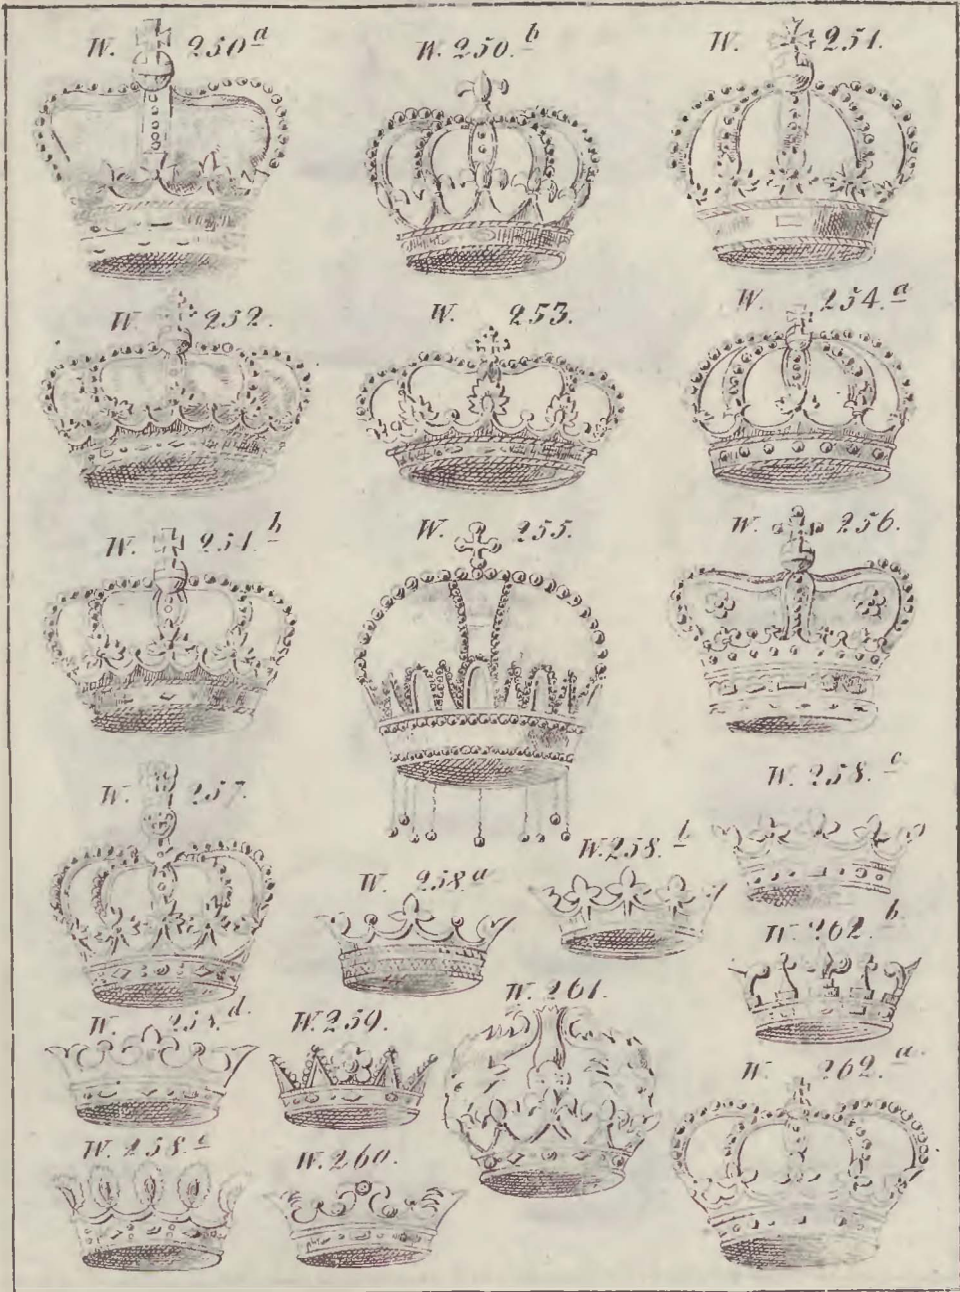 W. 250.a
W. 250.b
W. 251.
W. 252.
W. 253.
W. 254.a
W. 254.b
W. 255.
W. 256.
W. 257.
W. 258.a
W. 258.b
W. 258.c
W. 262.b
W. 258.d
W. 259.
W. 261.
W. 262.a
W. 258.e
W. 260.